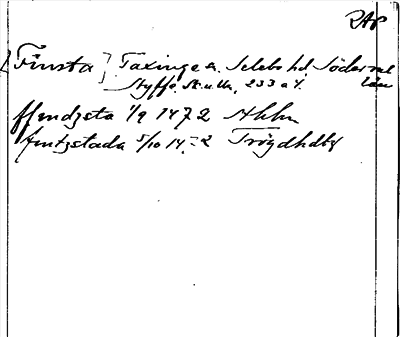 RAP
[Finsta] Taxinge sn. Selebo hd. Söderml län
Styffe, Sk. u. Un., 233 a 4.
ffindzsta 1/9 1472
fintzstada 5/10 14 2 Tröghdbf